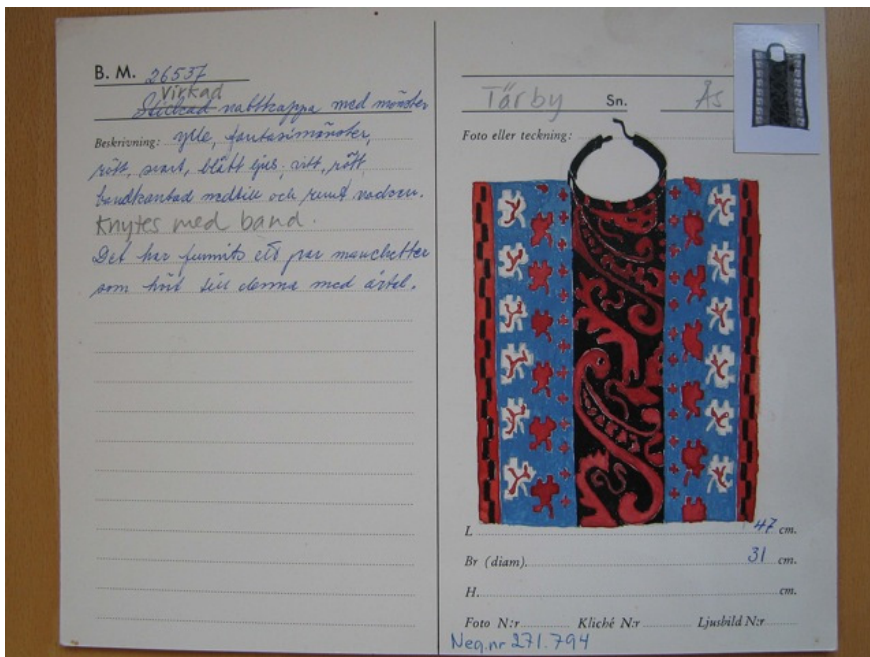 B. M. 26537
Virkad
Stickad nattkappa med mönster
Beskrivning: ylle, fantasimönster,
rött, svart, blått ljus, vitt, rött,
bandkantad nedtill och runt
Knytes med band.
Det har funnits ett par manchetter
som hört till denna med ärtel.
Tärby Sn. Ås
Foto eller teckning:
L 47 cm.
Br (diam). 31 cm.
H. cm.
Foto N:r Kliché N:r Ljusbild N:r
Neg.nr 271.794